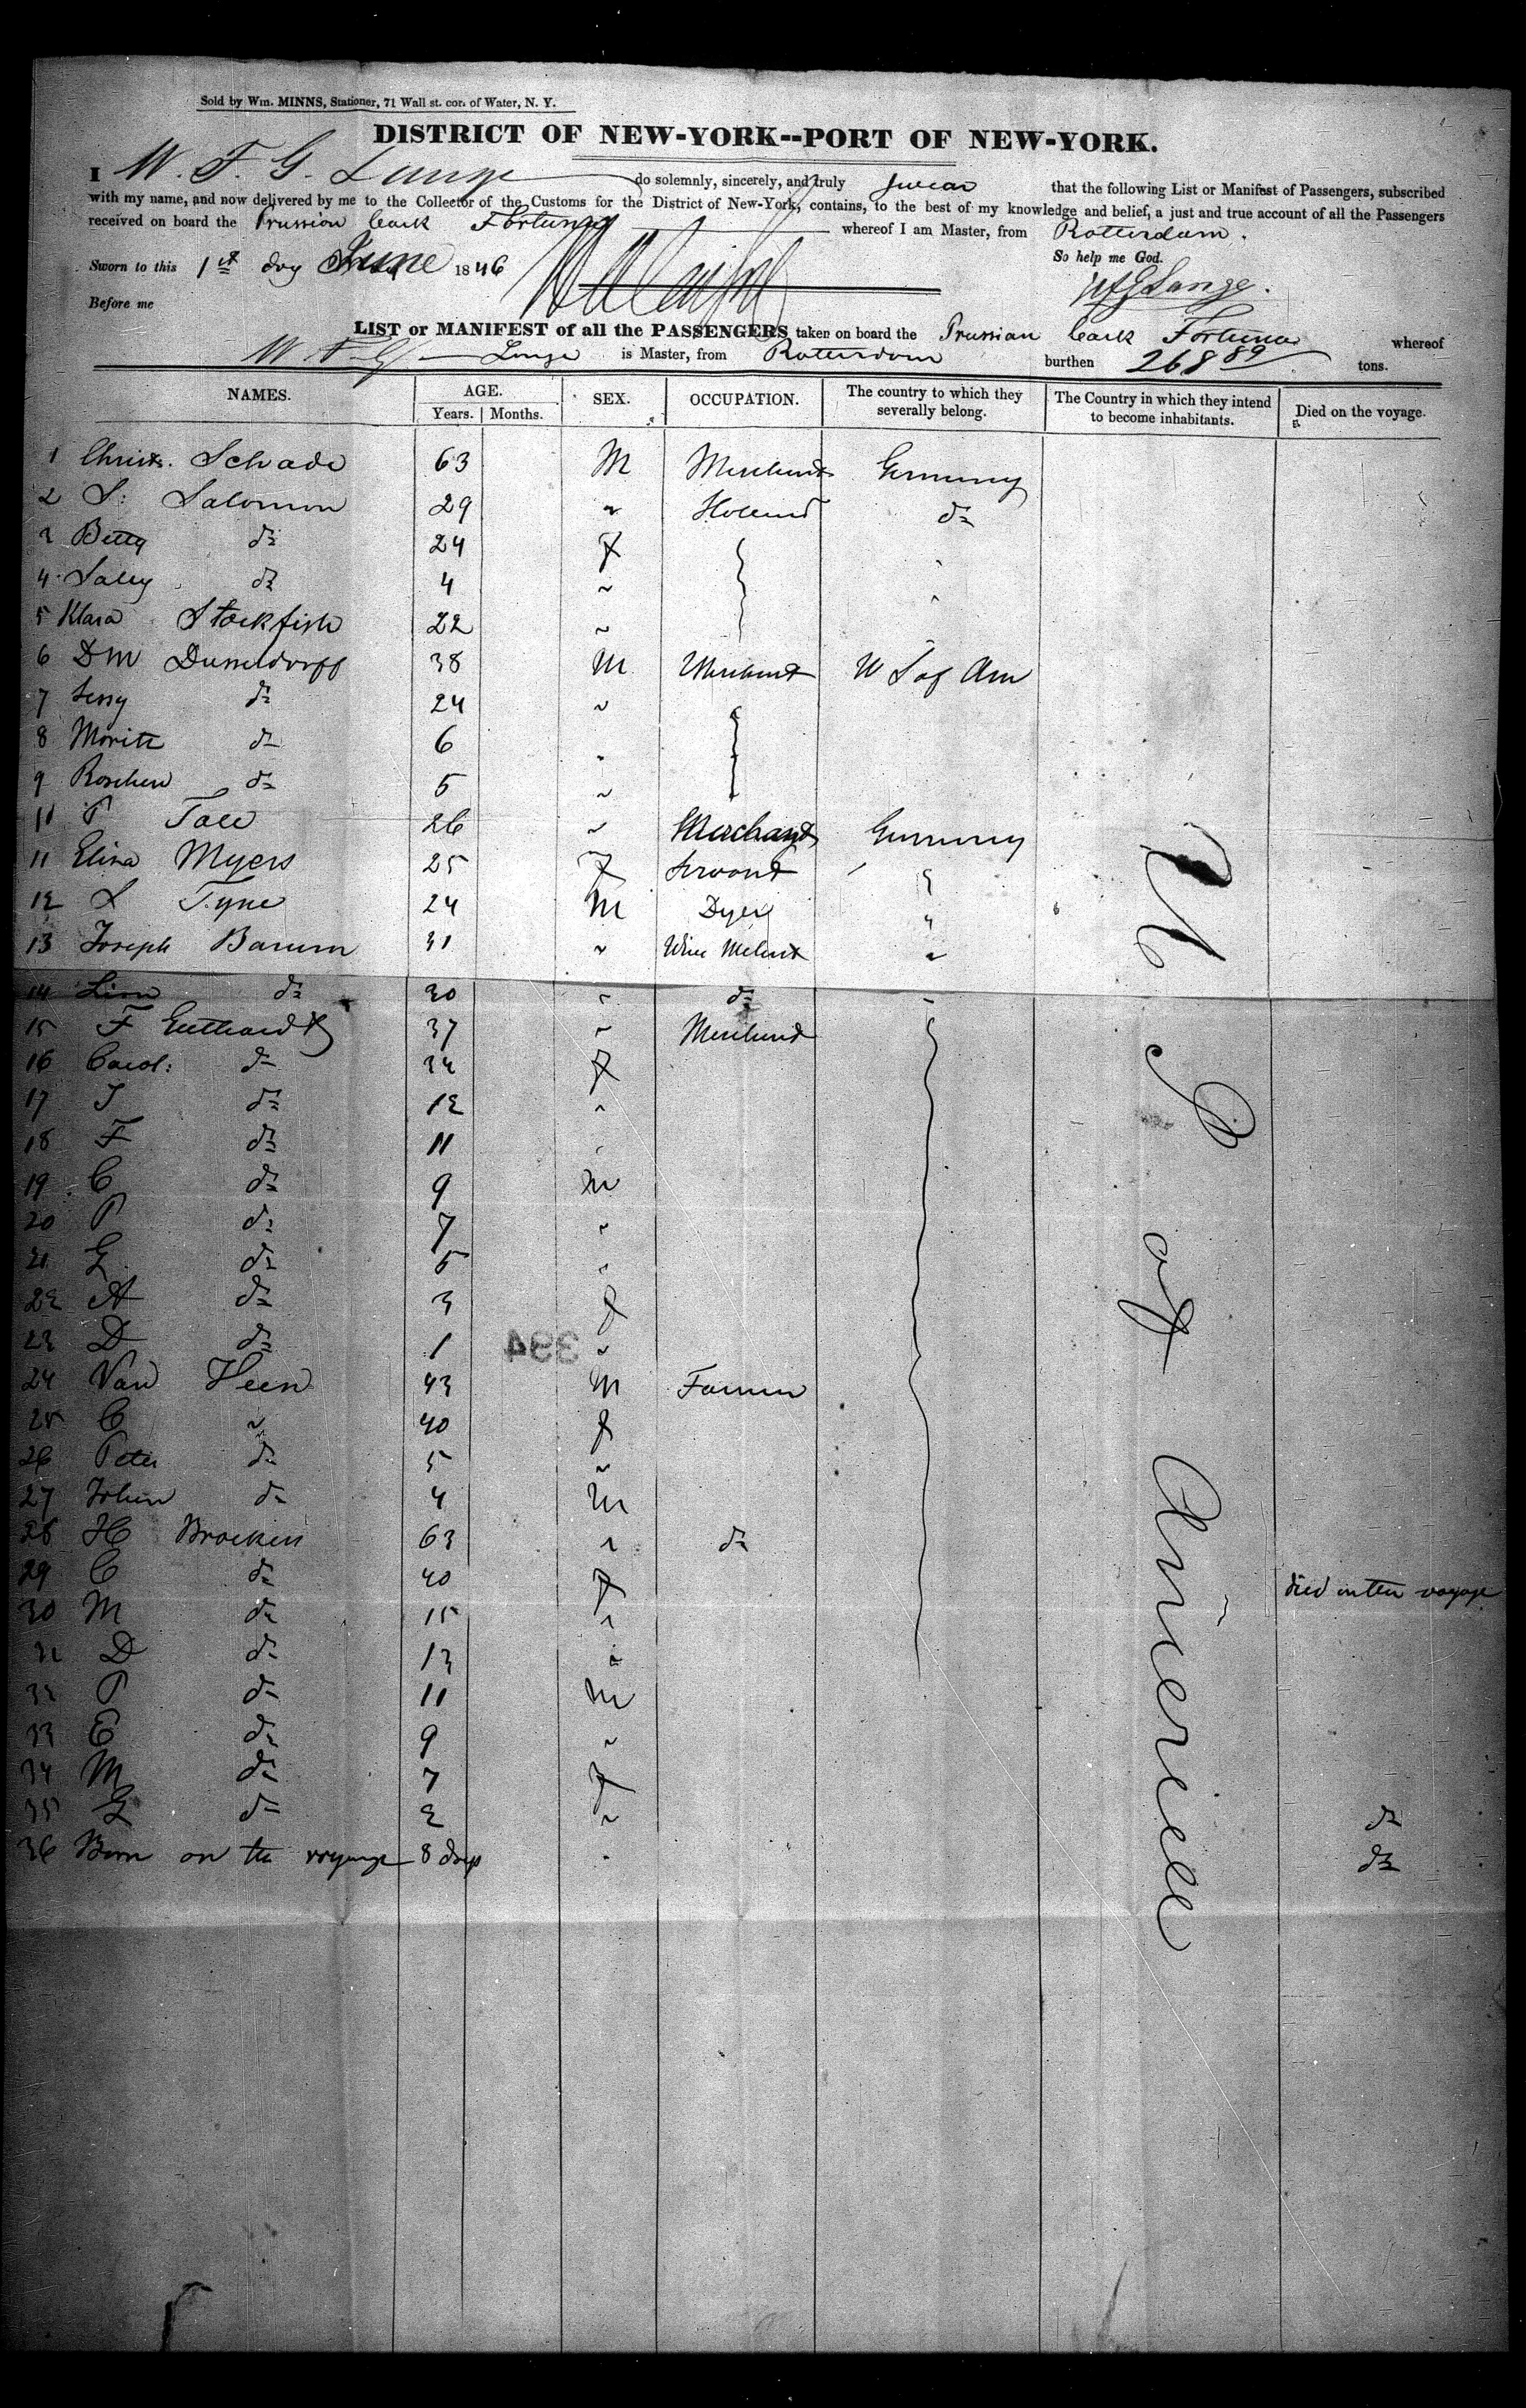 Sold by Wm. MINNS, Stationer, 71 Wall st. cor. of Water, N. Y.
DISTRICT OF NEW-YORK--PORT OF NEW-YORK.
I W. F. G. Lange do solemnly, sincerely, and truly swear that the following List or Manifest of Passengers, subscribed
with my name, and now delivered by me to the Collector of the Customs for the District of New-York, contains, to the best of my knowledge and belief, a just and true account of all the Passengers
received on board the Prussian bark Fortuna whereof I am Master, from Rotterdam.
Sworn to this 1st day June 1846 So help me God.
Before me WFG Lange.
LIST or MANIFEST of all the PASSENGERS taken on board the Prussian bark Fortuna whereof
W F G Lange is Master, from Rotterdam burthen 268 89 tons.
NAMES. AGE. Years. Months. SEX. OCCUPATION. The country to which they severally belong. The Country in which they intend to become inhabitants. Died on the voyage.
1 Christ. Schade 63 M Merchant Germany
2 S: Salomon 29 " Holland do
3 Betty do 24 f "
4 Sally do 4 " "
5 Klara Stockfish 22 " "
6 DM Dusseldorff 38 M Merchant U S of Am
7 Jessy do 24 "
8 Moritz do 6 "
9 Roschen do 5 "
10 P 26 " Merchant Germany
11 Elina Myers 25 F Servant "
12 L Tyne 24 M Dyer "
13 Joseph Barum 31 " Wine Mchnt "
14 do 30 " do "
15 F Guthardt 37 " Merchant
16 Carol: do 34 f
17 J do 12 "
18 F do 11 "
19 C do 9 M
20 P do 7 "
21 G do 5 "
22 A do 3 f
23 D do 1 "
394
24 Van Heen 43 M Farmer
25 C " 40 f
26 Peter do 5 "
27 John do 4 M
28 H Brocken 63 " do
29 C do 40 f died on the voyage
30 M do 15 "
31 D do 13 "
32 P do 11 M
33 E do 9 "
34 M do 7 f
35 G do 2 " do
36 Born on the voyage 8 days " do
U S of America